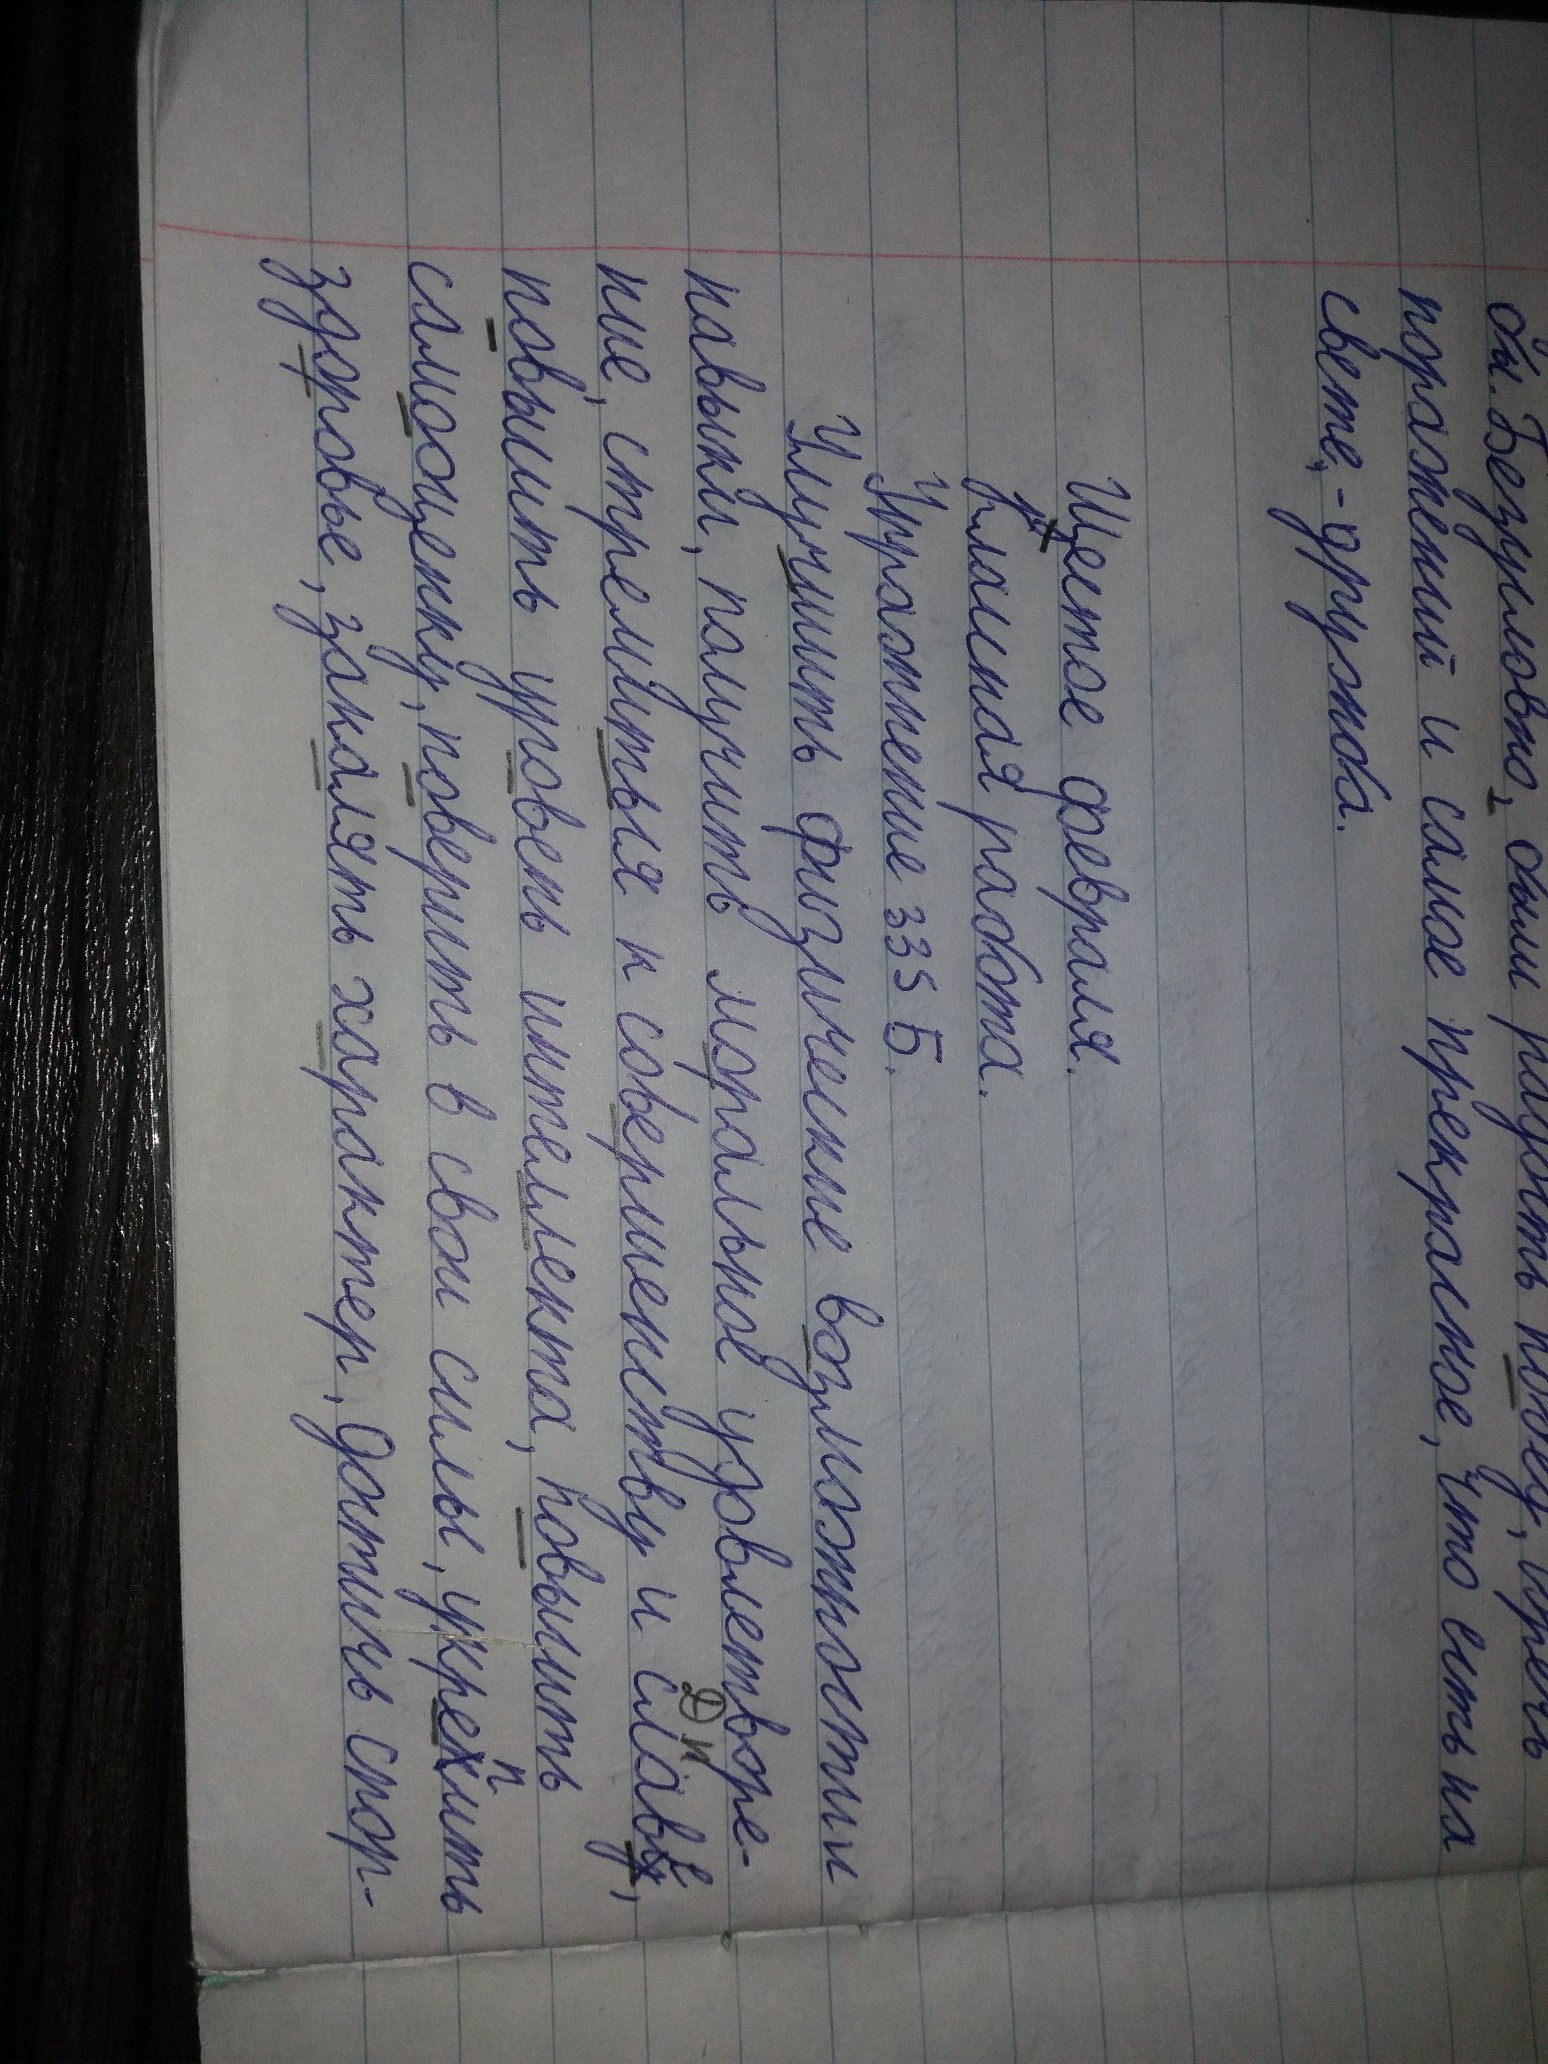 бы. Безусловно, были радость побед, гречь
поражений и самое прекрасное, что есть на
свете, - дружба.
Шестое февраля.
Классная работа.
Упражнение 335 Б.
Улучшить физические возможности
навыки, получить моральное удовлетворе-
ние, стремиться к совершенству и славе,
Д п
повысить уровень интеллекта, повысить
самооценку, поверить в свои силы, укрепить
здоровье, закалять характер, достичь спор-